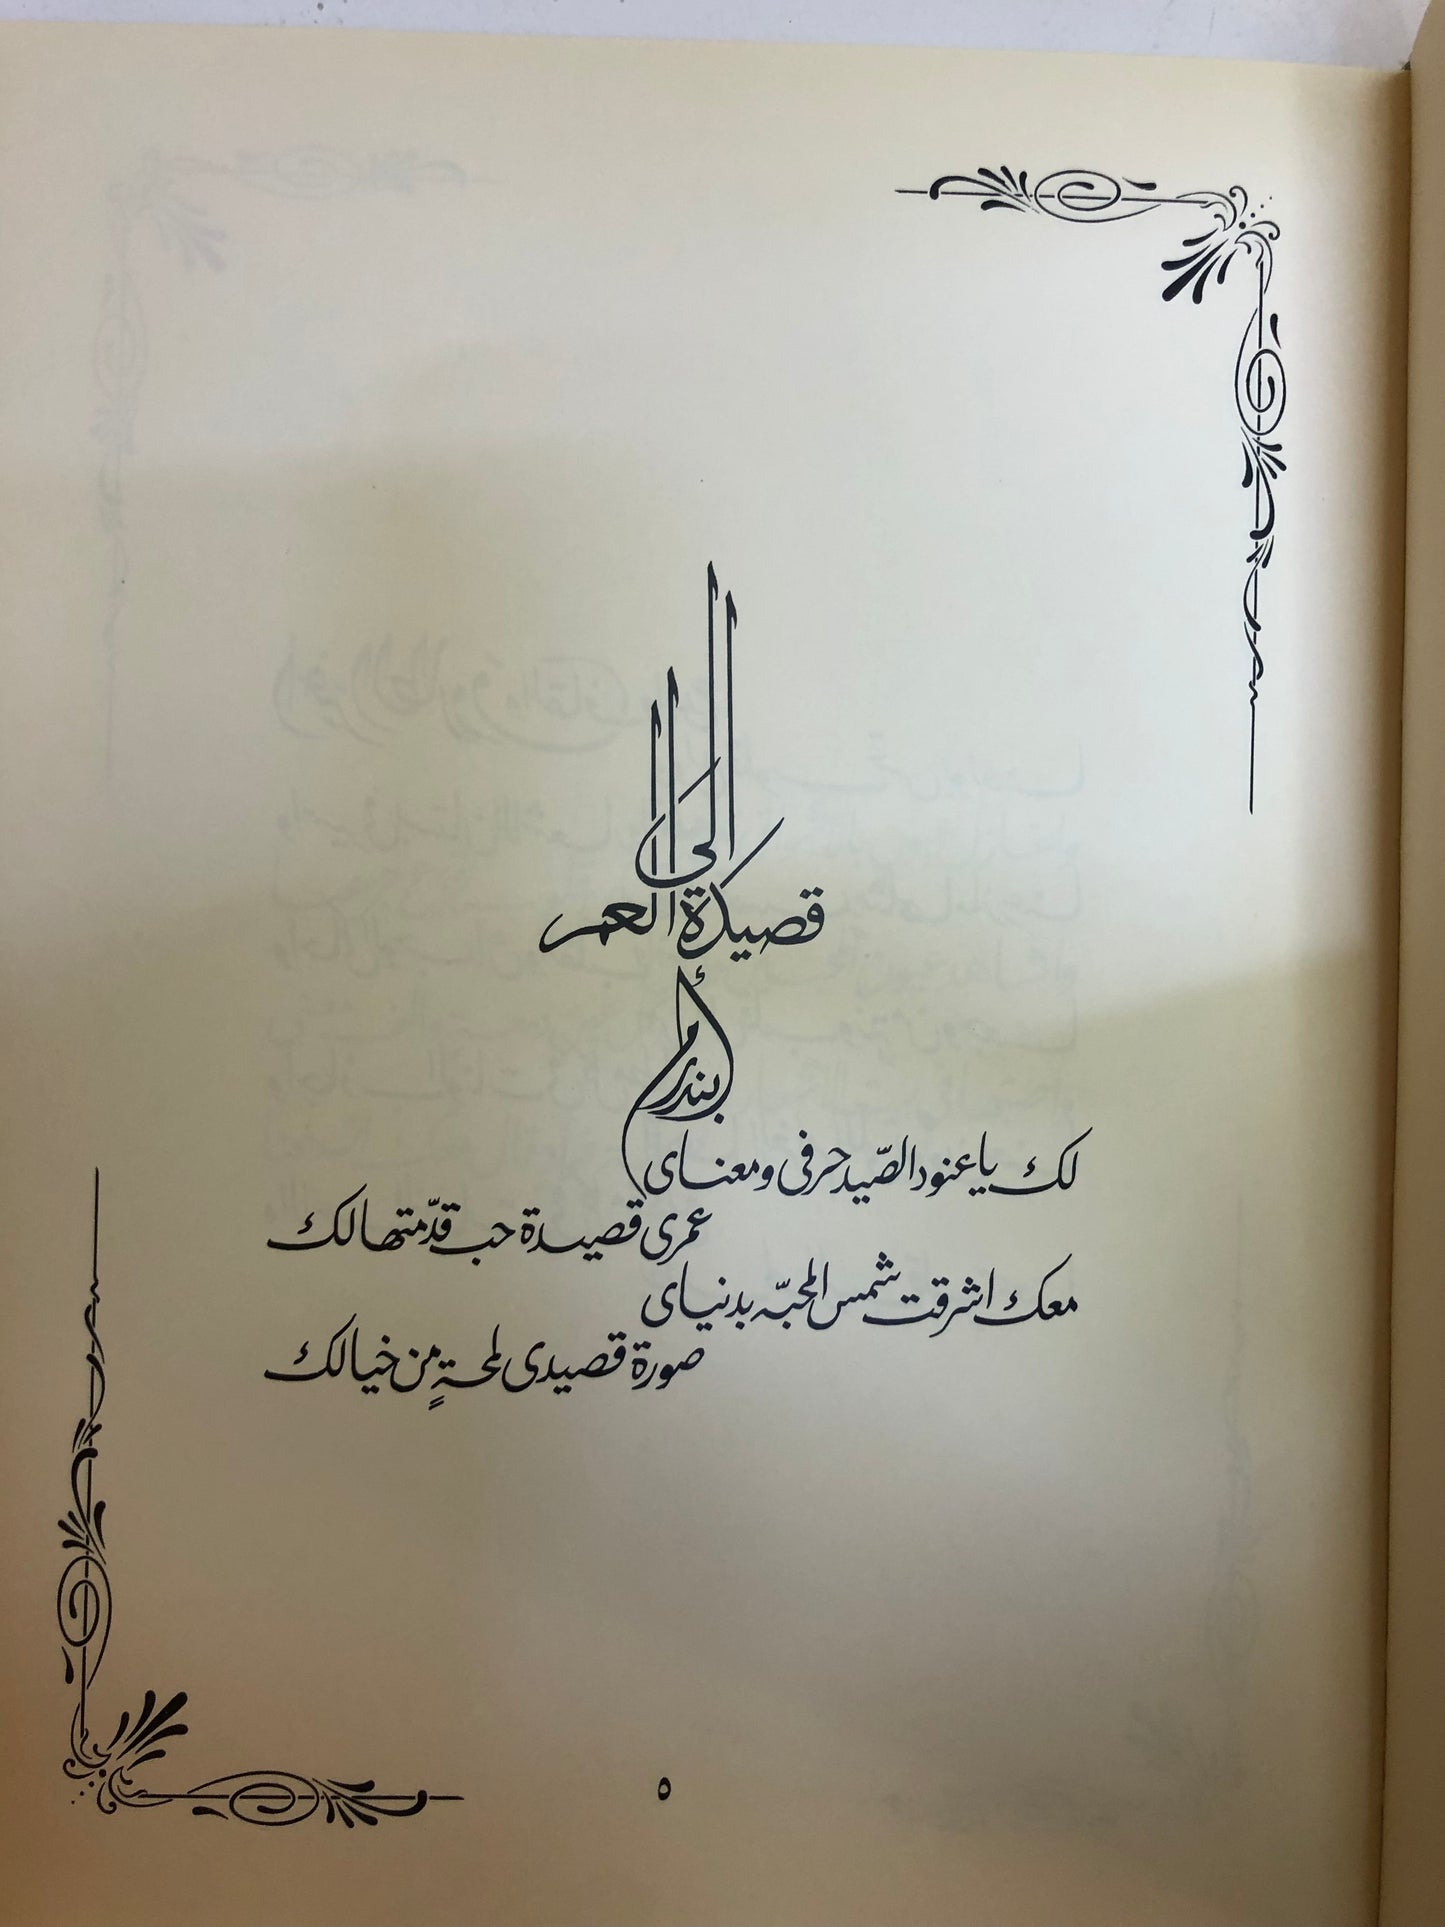 الى
قصيدة العمر
أم بندر
لك يا عنود الصّيد حرفى ومعناى
عمرى قصيدة حب قدّمتها لك
معك اشرقت شمس المحبّه بدنياى
صورة قصيدى لمحةٍ من خيالك
٥